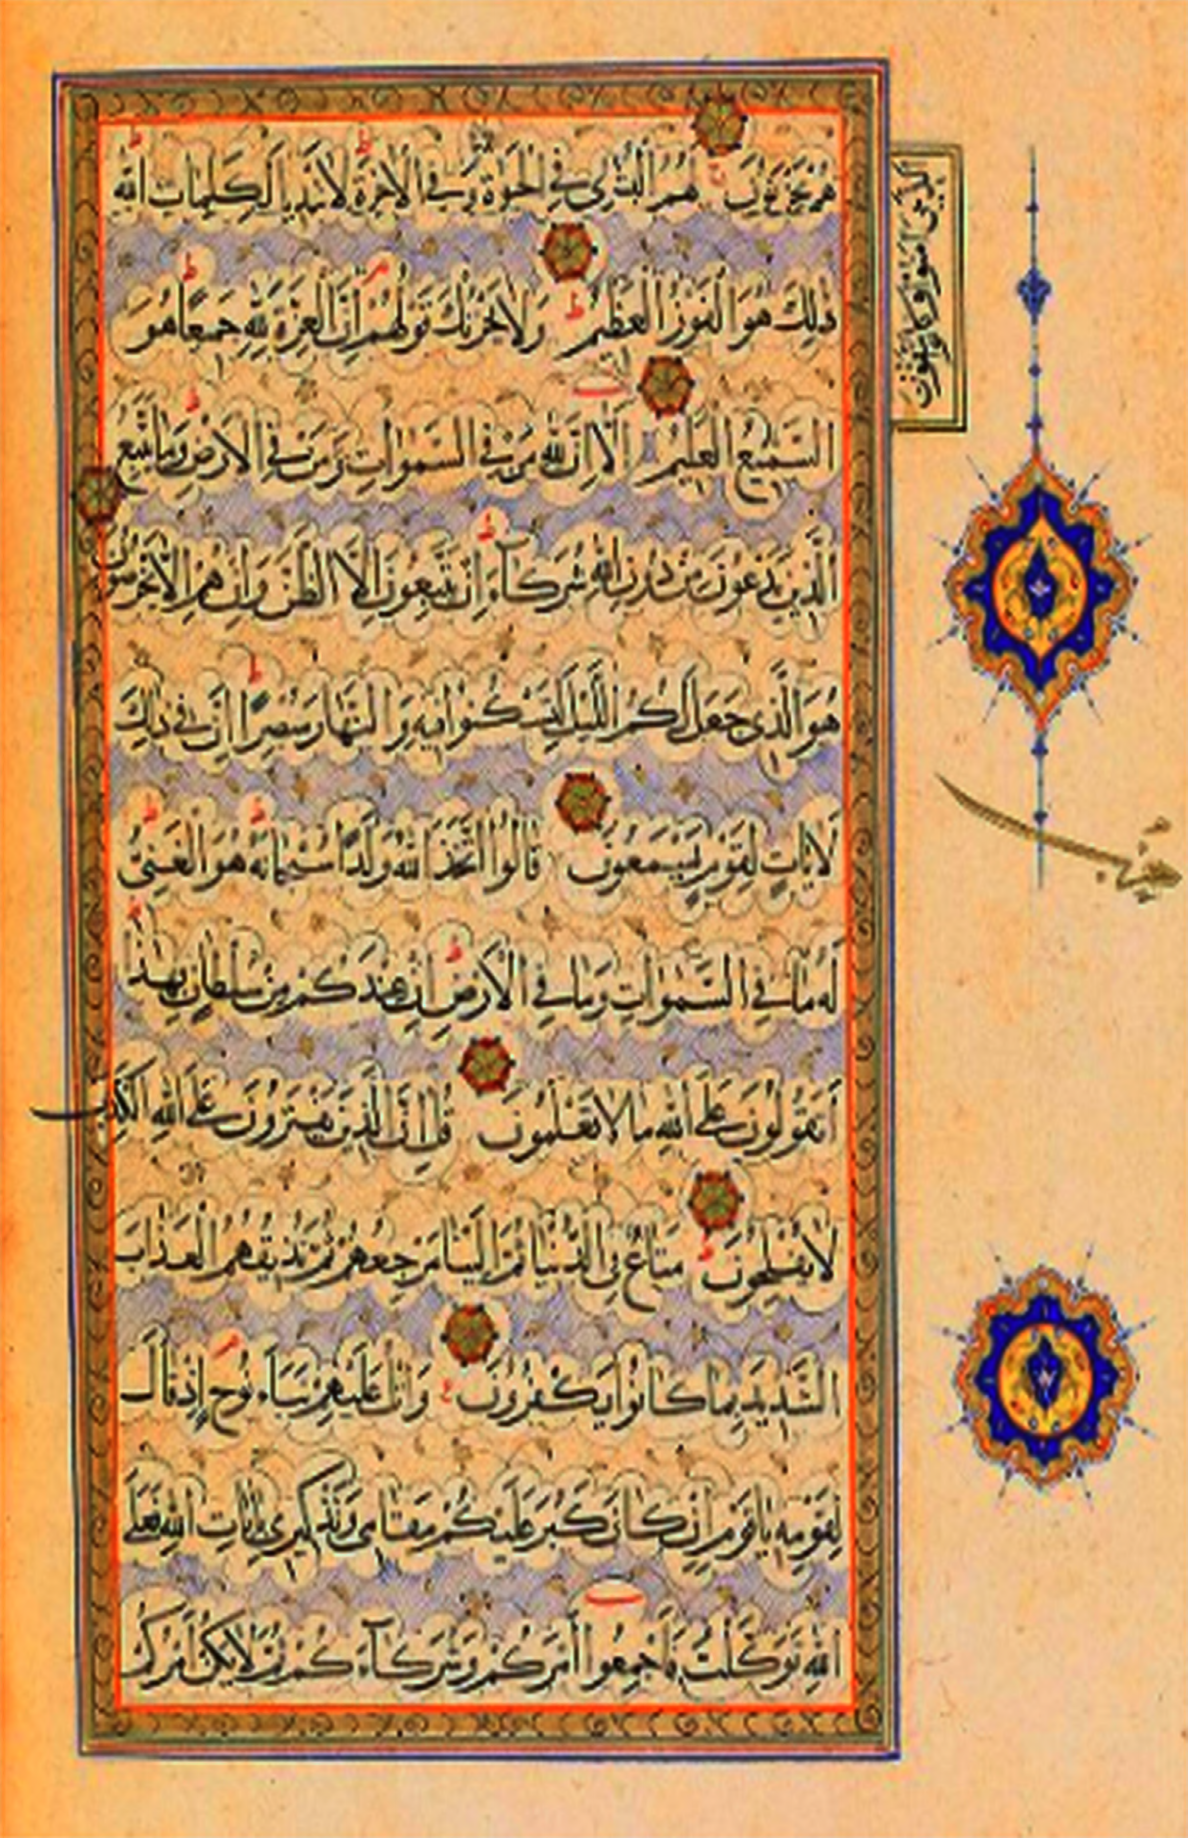 هم يحزنون لهم البشرى في الحيوة وفي الاخرة لا تبديل لكلمات الله
ذلك هو الفوز العظيم ولا يحزنك قولهم ان العزة لله جميعا هو
السميع العليم الا ان لله من في السموات ومن في الارض وما يتبع
الذين يدعون من دون الله شركاء ان يتبعون الا الظن وان هم الا يخرصون
هو الذي جعل لكم الليل لتسكنوا فيه والنهار مبصرا ان في ذلك
لايات لقوم يسمعون قالوا اتخذ الله ولدا سبحانه هو الغني
له ما في السموات وما في الارض ان عندكم من سلطان بهذا
اتقولون على الله ما لا تعلمون قل ان الذين يفترون على الله الكذب
لا يفلحون متاع في الدنيا ثم الينا مرجعهم ثم نذيقهم العذاب
الشديد بما كانوا يكفرون واتل عليهم نباء نوح اذ قال
لقومه ياقوم ان كان كبر عليكم مقامي وتذكيري بايات الله فعلى
الله توكلت فاجمعوا امركم وشركاءكم ثم لا يكن امركم
الذين امنوا وكانوا يتقون
حزب